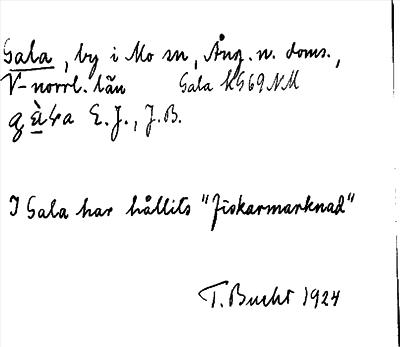 Gala, by i Mo sn, Ång. n. doms.,
V-norrl. län Gala KG69NM
E.J., J.B.
I Gala har hållits "Fiskarmarknad"
T. Bucht 1924